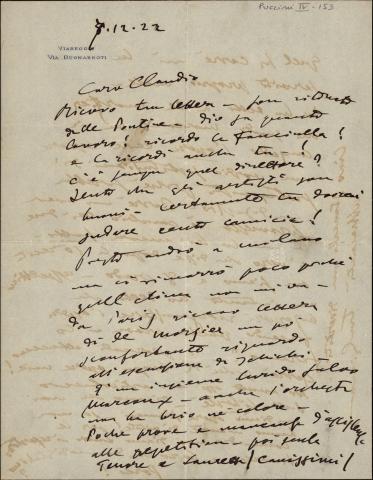 Puccini IV - 153
7.12.22
VIAREGGIO
VIA BUONARROTI
Caro Claudio
Ricevo tua lettera -
dio sa quanto
lavoro! ricordo la Fanciulla!
e la ricordi anche tu - !
c'è sempre quel direttore?
Sento che gli artisti son
buoni - certamente tu dovrai
sudare cento camicie!
Presto andrò a Milano
ma ci rimarrò poco perchè
quel clima non mi va -
Da Parigi ricevo lettera
di un po'
sconfortante riguardo
all'esecuzione di Schicchi -
Marcoux - anche l'orchestra
non ha brio nè colore -
Poche prove e
alle ripetizioni - poi
Tenore e Lauretta (canissimi)